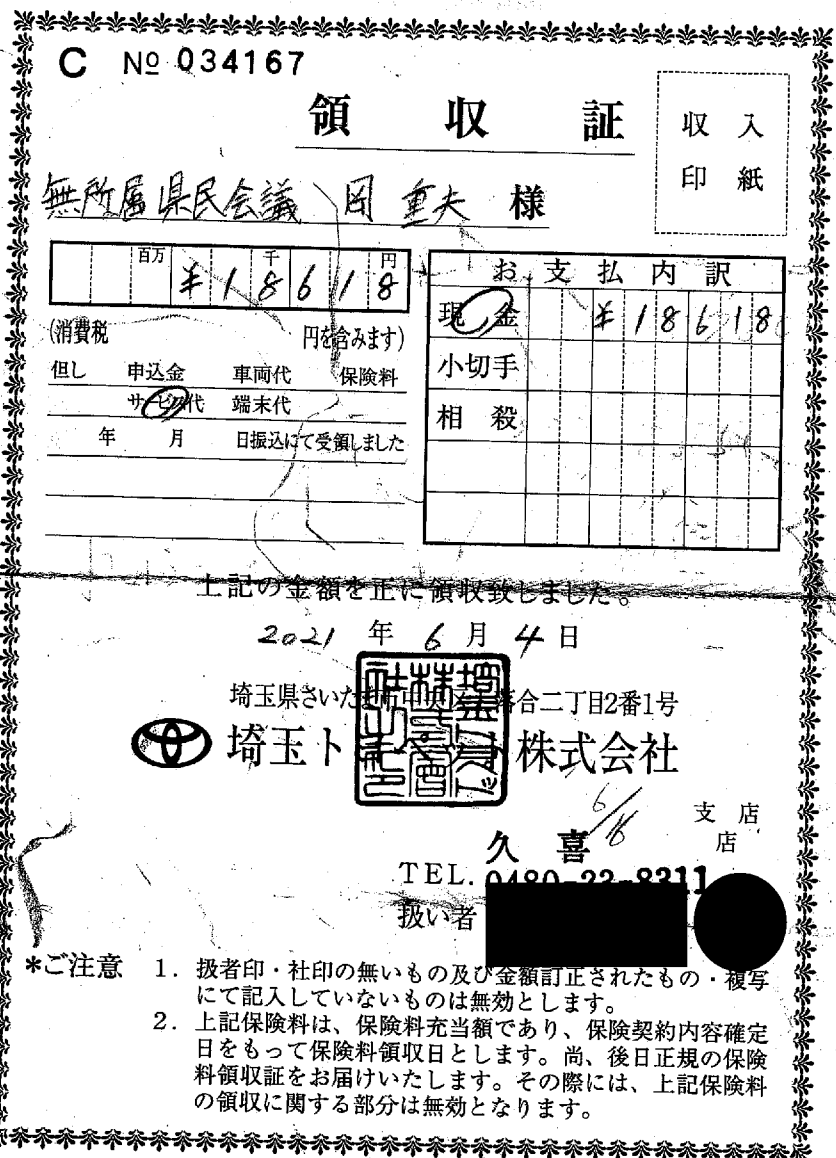 C № 034167
領収証
収入
印紙
無所属県民会議 岡 重夫 様
百万 千 円
¥18618
(消費税 円を含みます)
但し 申込金 車両代 保険料
サービス代 端末代
年 月 日振込にて受領しました
お支払内訳
現金 ¥18618
小切手
相殺
上記の金額を正に領収致しました。
2021年6月4日
埼玉県さいたま市中央区 落合二丁目2番1号
埼玉トヨペット株式会社
6/16
支店
久喜 店
TEL. 0480-22-8311
扱い者
*ご注意 1. 扱者印・社印の無いもの及び金額訂正されたもの・複写
にて記入していないものは無効とします。
2. 上記保険料は、保険料充当額であり、保険契約内容確定
日をもって保険料領収日とします。尚、後日正規の保険
料領収証をお届けいたします。その際には、上記保険料
の領収に関する部分は無効となります。